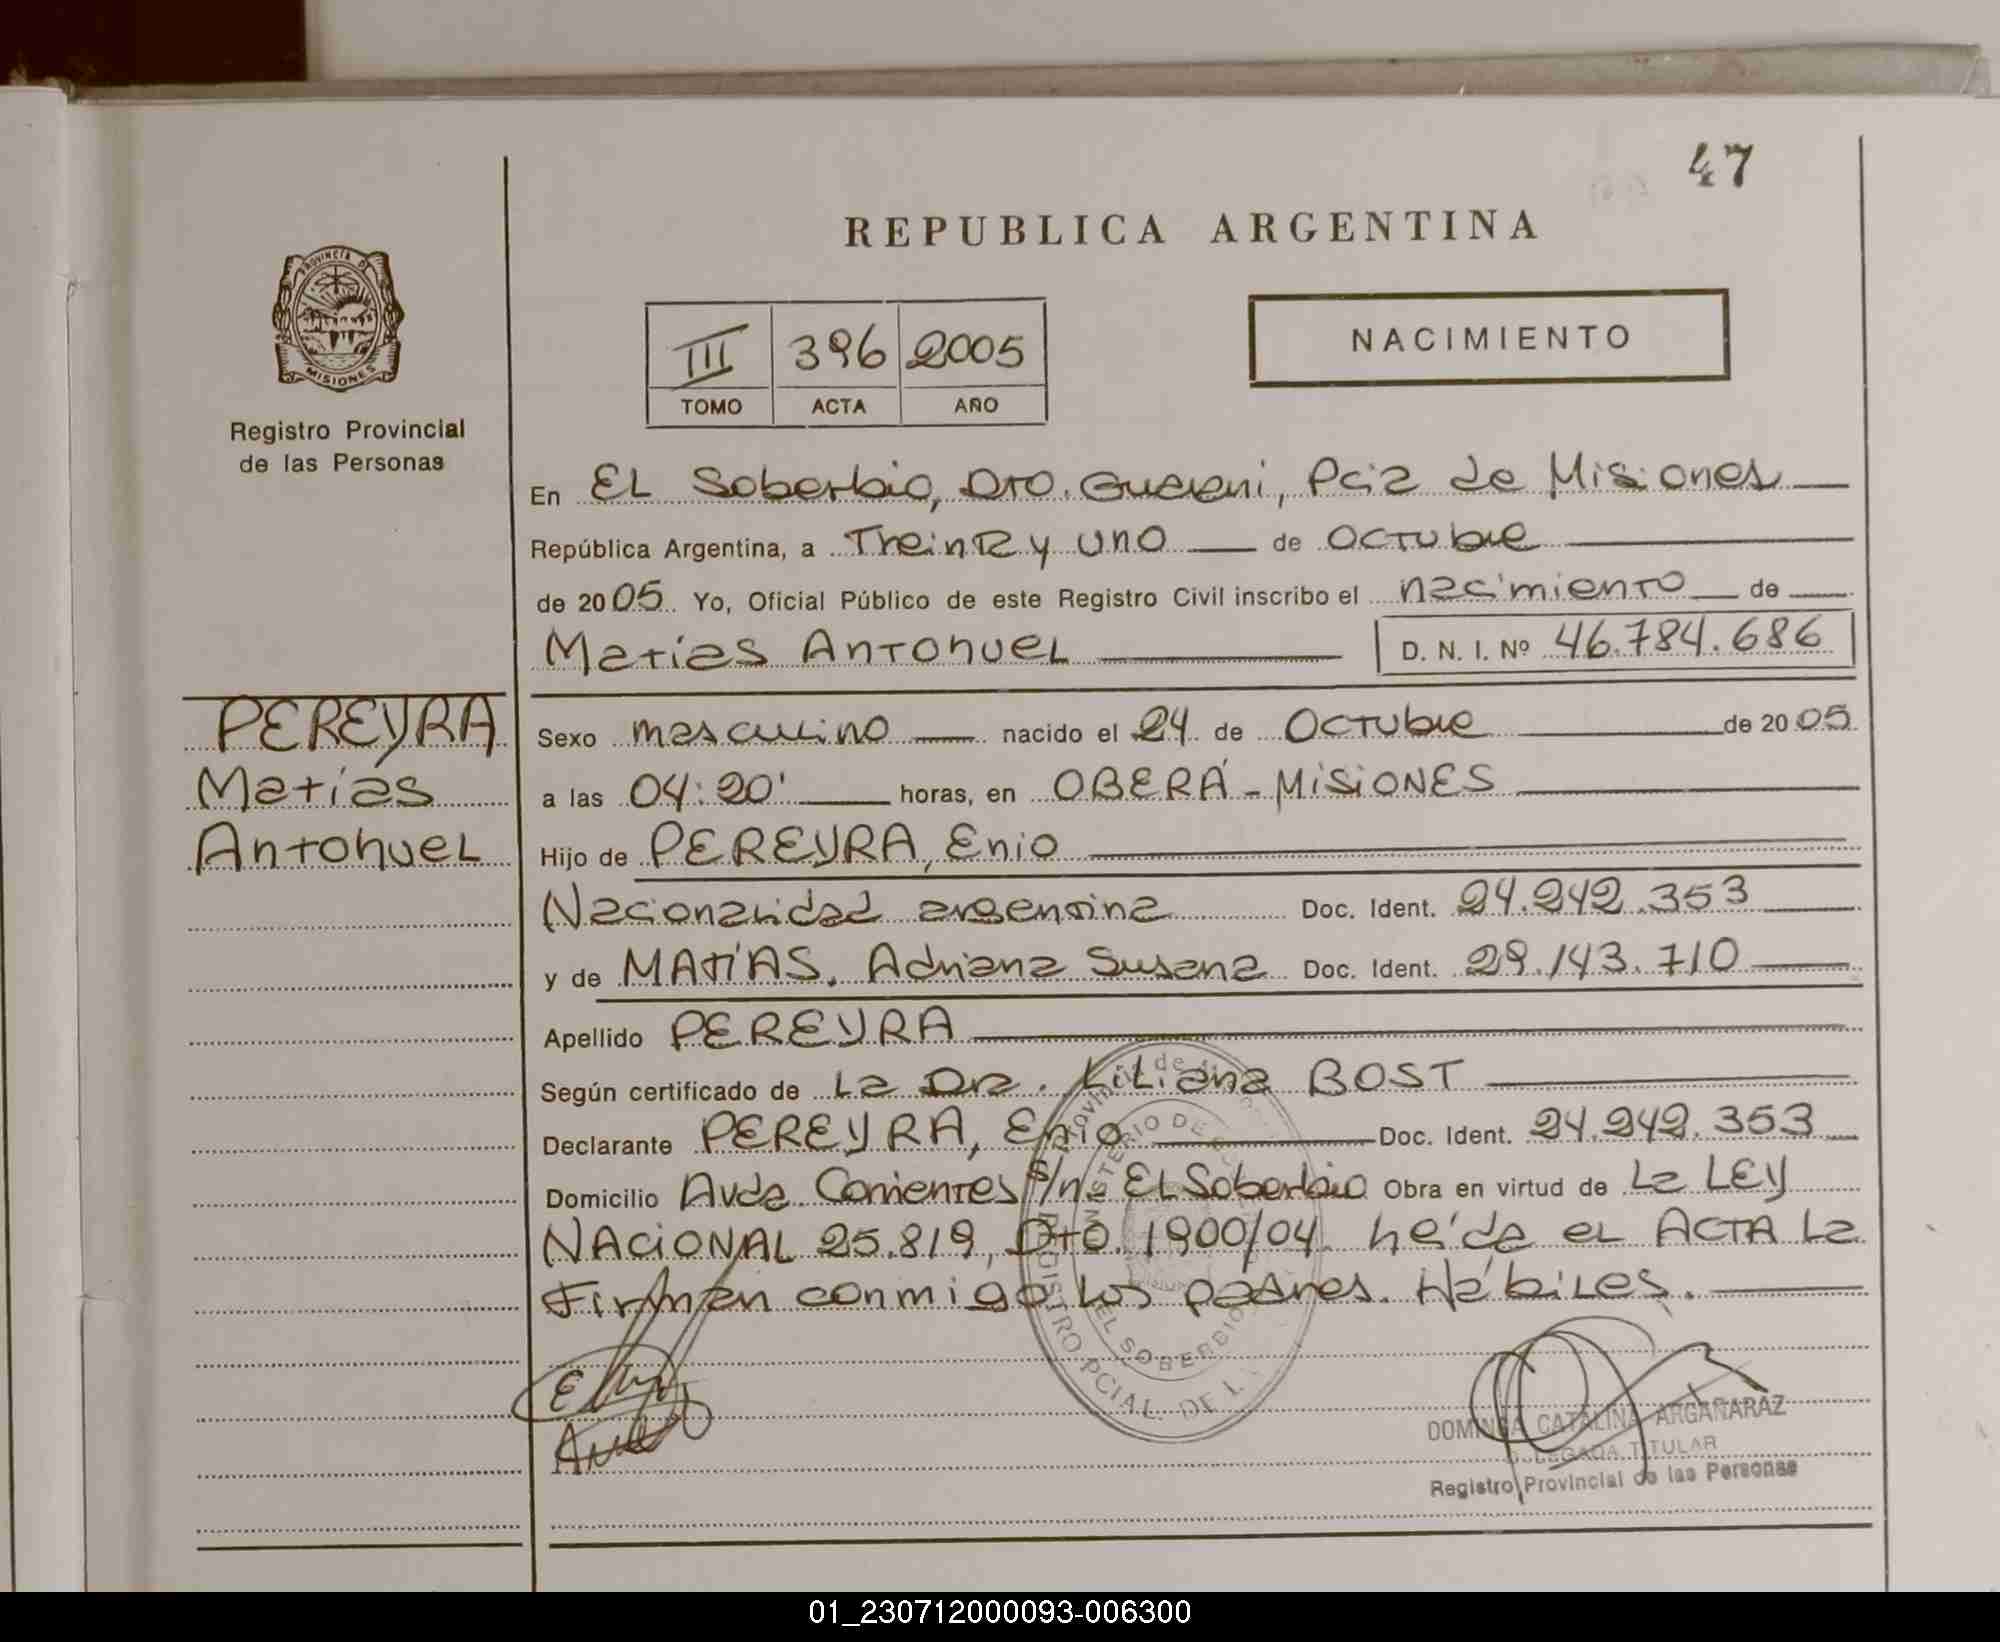 47
REPUBLICA ARGENTINA
PROVINCIA DE
MISIONES
Registro Provincial
de las Personas
III 396 2005
TOMO ACTA AÑO
NACIMIENTO
En EL Soberbio, Dto. Guarani, Pcia de Misiones
República Argentina, a Treinta y uno de Octubre
de 2005. Yo, Oficial Público de este Registro Civil inscribo el nacimiento de
Matías Antohuel D. N. I. Nº 46.784.686
PEREYRA
Matías
Antohuel
Sexo masculino nacido el 24 de Octubre de 2005
a las 04:20' horas, en OBERÁ - MISIONES
Hijo de PEREYRA, Enio
Nacionalidad argentina Doc. Ident. 24.242.353
y de MATÍAS, Adriana Susana Doc. Ident. 29.143.710
Apellido PEREYRA
Según certificado de La Dra. Liliana BOST
Declarante PEREYRA, Enio Doc. Ident. 24.242.353
Domicilio Avda. Corrientes s/n- El Soberbio Obra en virtud de La LEY
NACIONAL 25.819, Dto. 1900/04. Leída el ACTA La
Firman conmigo los padres. Hábiles.
EL SOBERBIO
REGISTRO PCIAL. DE
DOMINGA CATALINA ARGAÑARAZ
DELEGADA TITULAR
Registro Provincial de las Personas
01_230712000093-006300